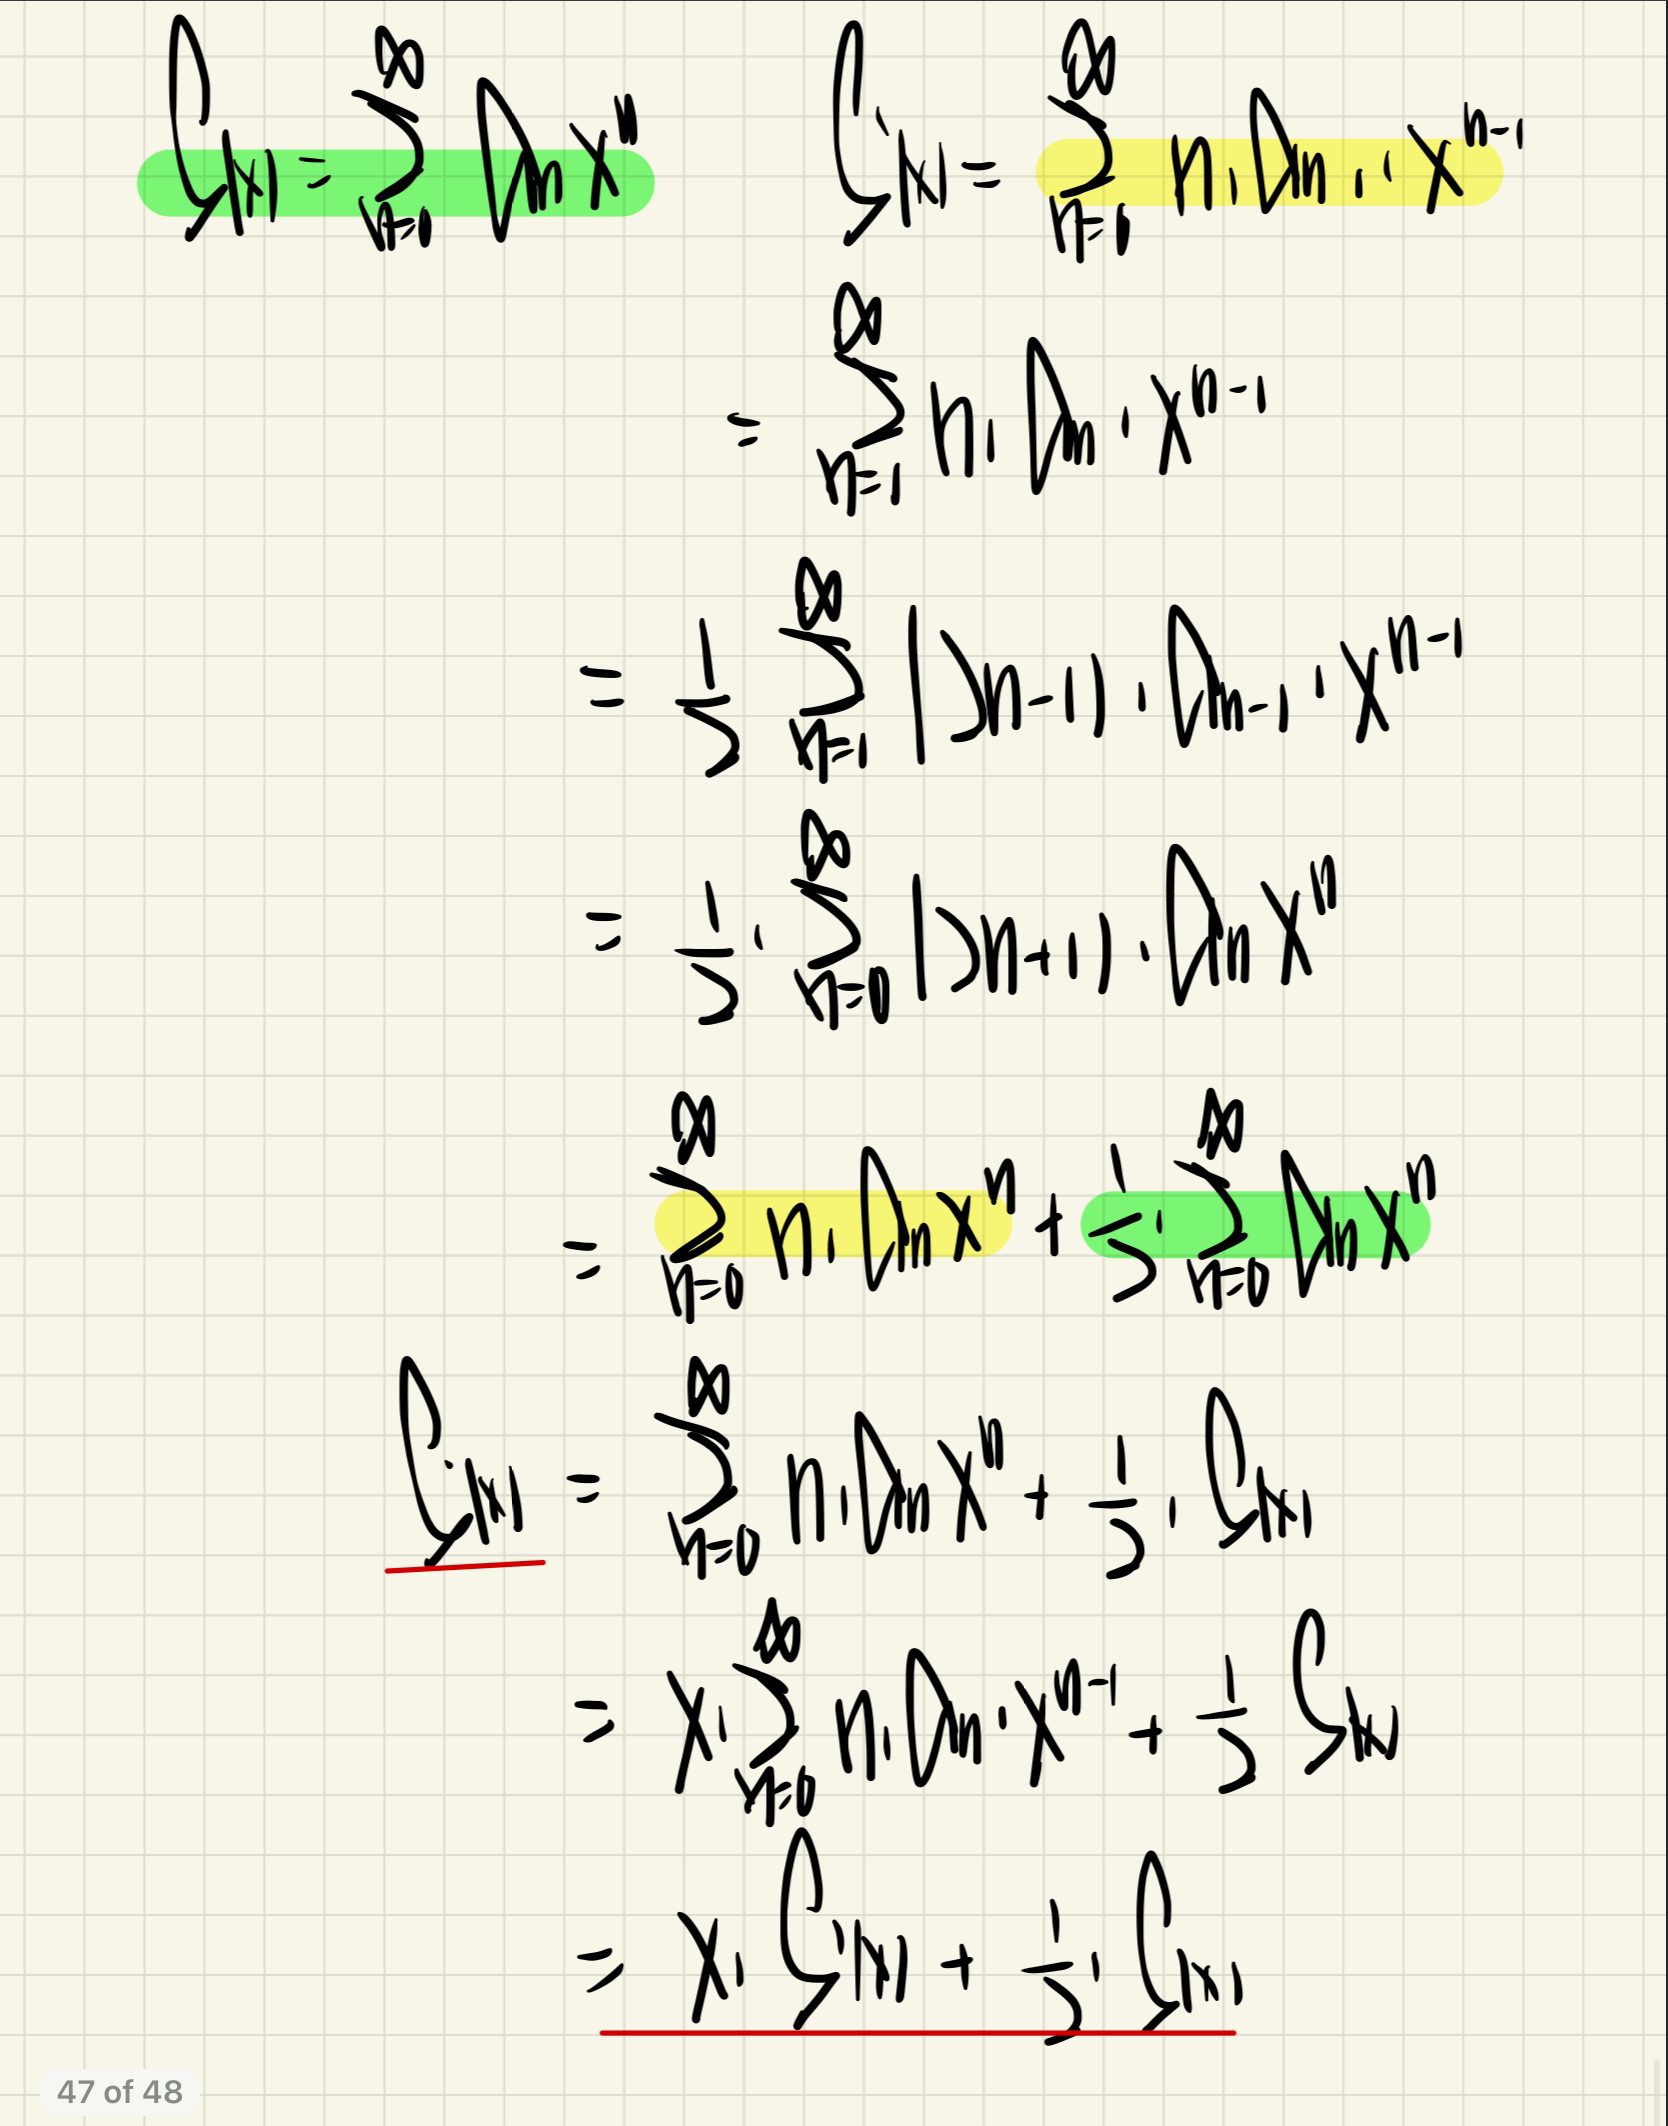 G(x) = ∑_{n=0}^{∞} a_n x^n    G'(x) = ∑_{n=0}^{∞} n · a_n · x^{n-1}
= ∑_{n=1}^{∞} n · a_n · x^{n-1}
= 1/2 ∑_{n=1}^{∞} (2n-1) · a_{n-1} · x^{n-1}
= 1/2 · ∑_{n=0}^{∞} (2n+1) · a_n x^n
= ∑_{n=0}^{∞} n · a_n x^n + 1/2 · ∑_{n=0}^{∞} a_n x^n
G'(x) = ∑_{n=0}^{∞} n · a_n x^n + 1/2 · G(x)
= x · ∑_{n=0}^{∞} n · a_n · x^{n-1} + 1/2 G(x)
= x · G'(x) + 1/2 · G(x)
47 of 48